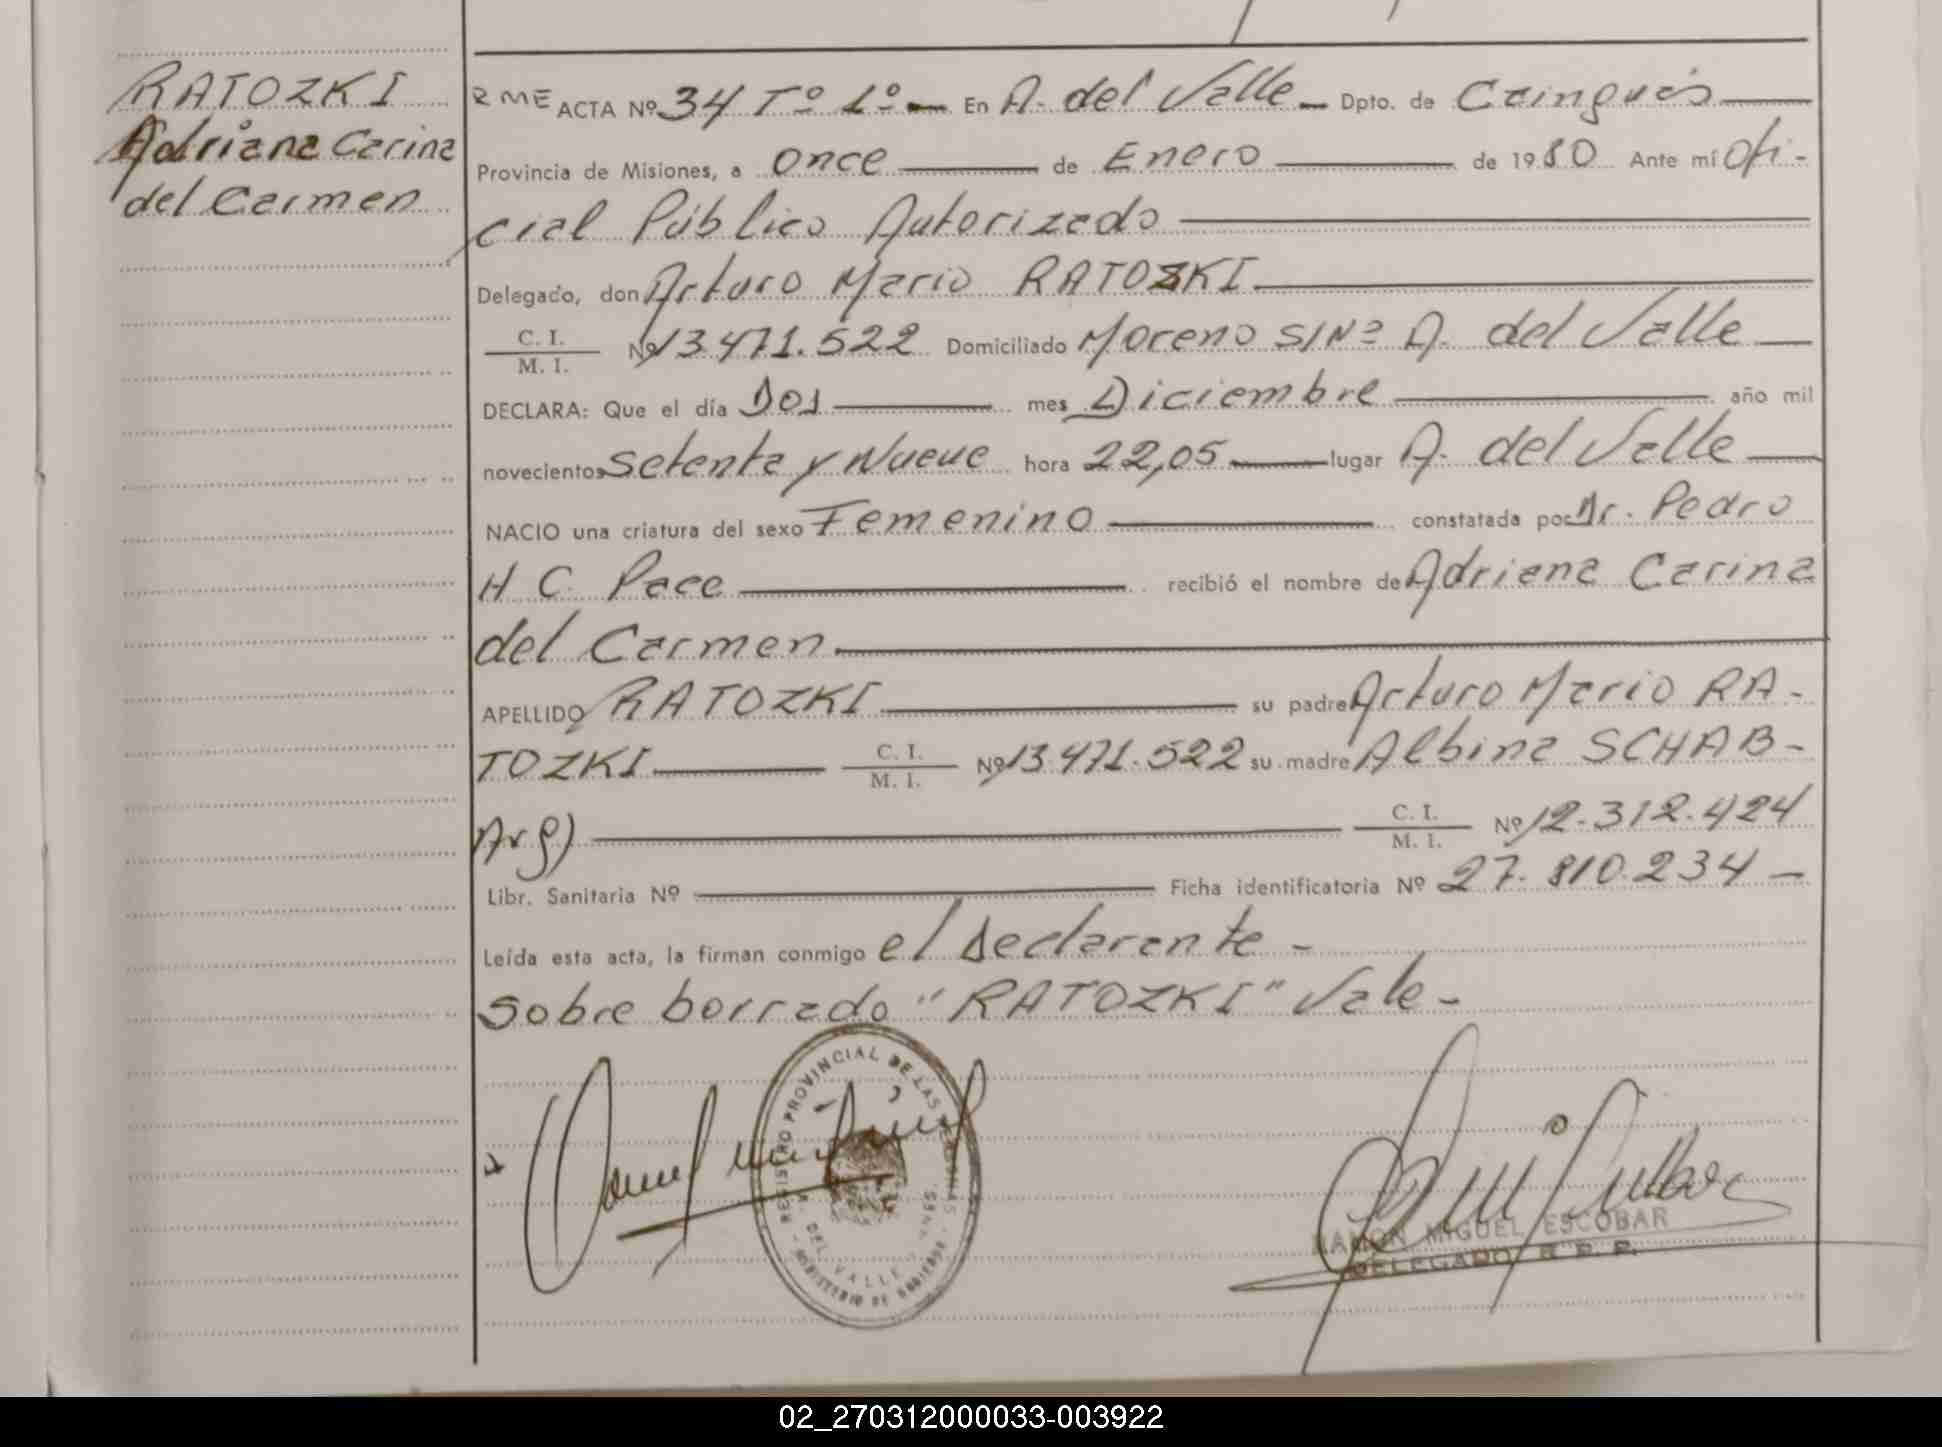 RATOZKI
Adriana Carina
del Carmen
RME ACTA Nº 34 Tº 1º En A. del Valle Dpto. de Cainguás
Provincia de Misiones, a Once de Enero de 1980 Ante mí Ofi-
cial Público Autorizado
Delegado, don Arturo Mario RATOZKI
C. I.
M. I. Nº 13.471.522 Domiciliado Moreno S/Nº A. del Valle
DECLARA: Que el día Dos mes Diciembre año mil
novecientos Setenta y Nueve hora 22,05 lugar A. del Valle
NACIO una criatura del sexo Femenino constatada por Dr. Pedro
H C. Pace recibió el nombre de Adriana Carina
del Carmen
APELLIDO RATOZKI su padre Arturo Mario RA-
TOZKI C. I. M. I. Nº 13.471.522 su madre Albina SCHAB-
Arg) C. I. M. I. Nº 12.312.424
Libr. Sanitaria Nº Ficha identificatoria Nº 27.810.234
Leída esta acta, la firman conmigo el Declarante -
Sobre borrado "RATOZKI" Vale -
REGISTRO PROVINCIAL DE LAS PERSONAS
DEL VALLE
MINISTERIO DE GOBIERNO
RAMON MIGUEL ESCOBAR
DELEGADO R. P. P.
02_270312000033-003922